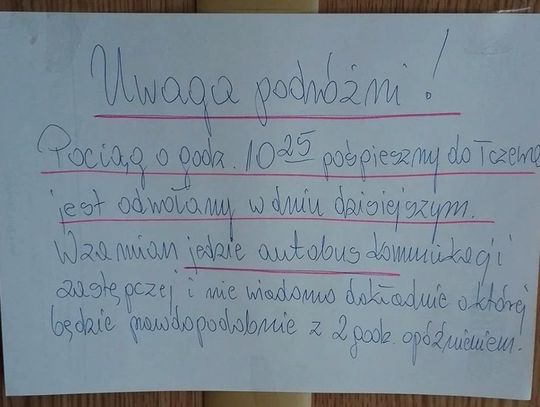 Uwaga podróżni!
Pociąg o godz. 10²⁵ pośpieszny do Tczewa
jest odwołany w dniu dzisiejszym.
Wzamian jedzie autobus komunikacji
zastępczej i nie wiadomo dokładnie o której
będzie prawdopodobnie z 2 godz. opóźnieniem.